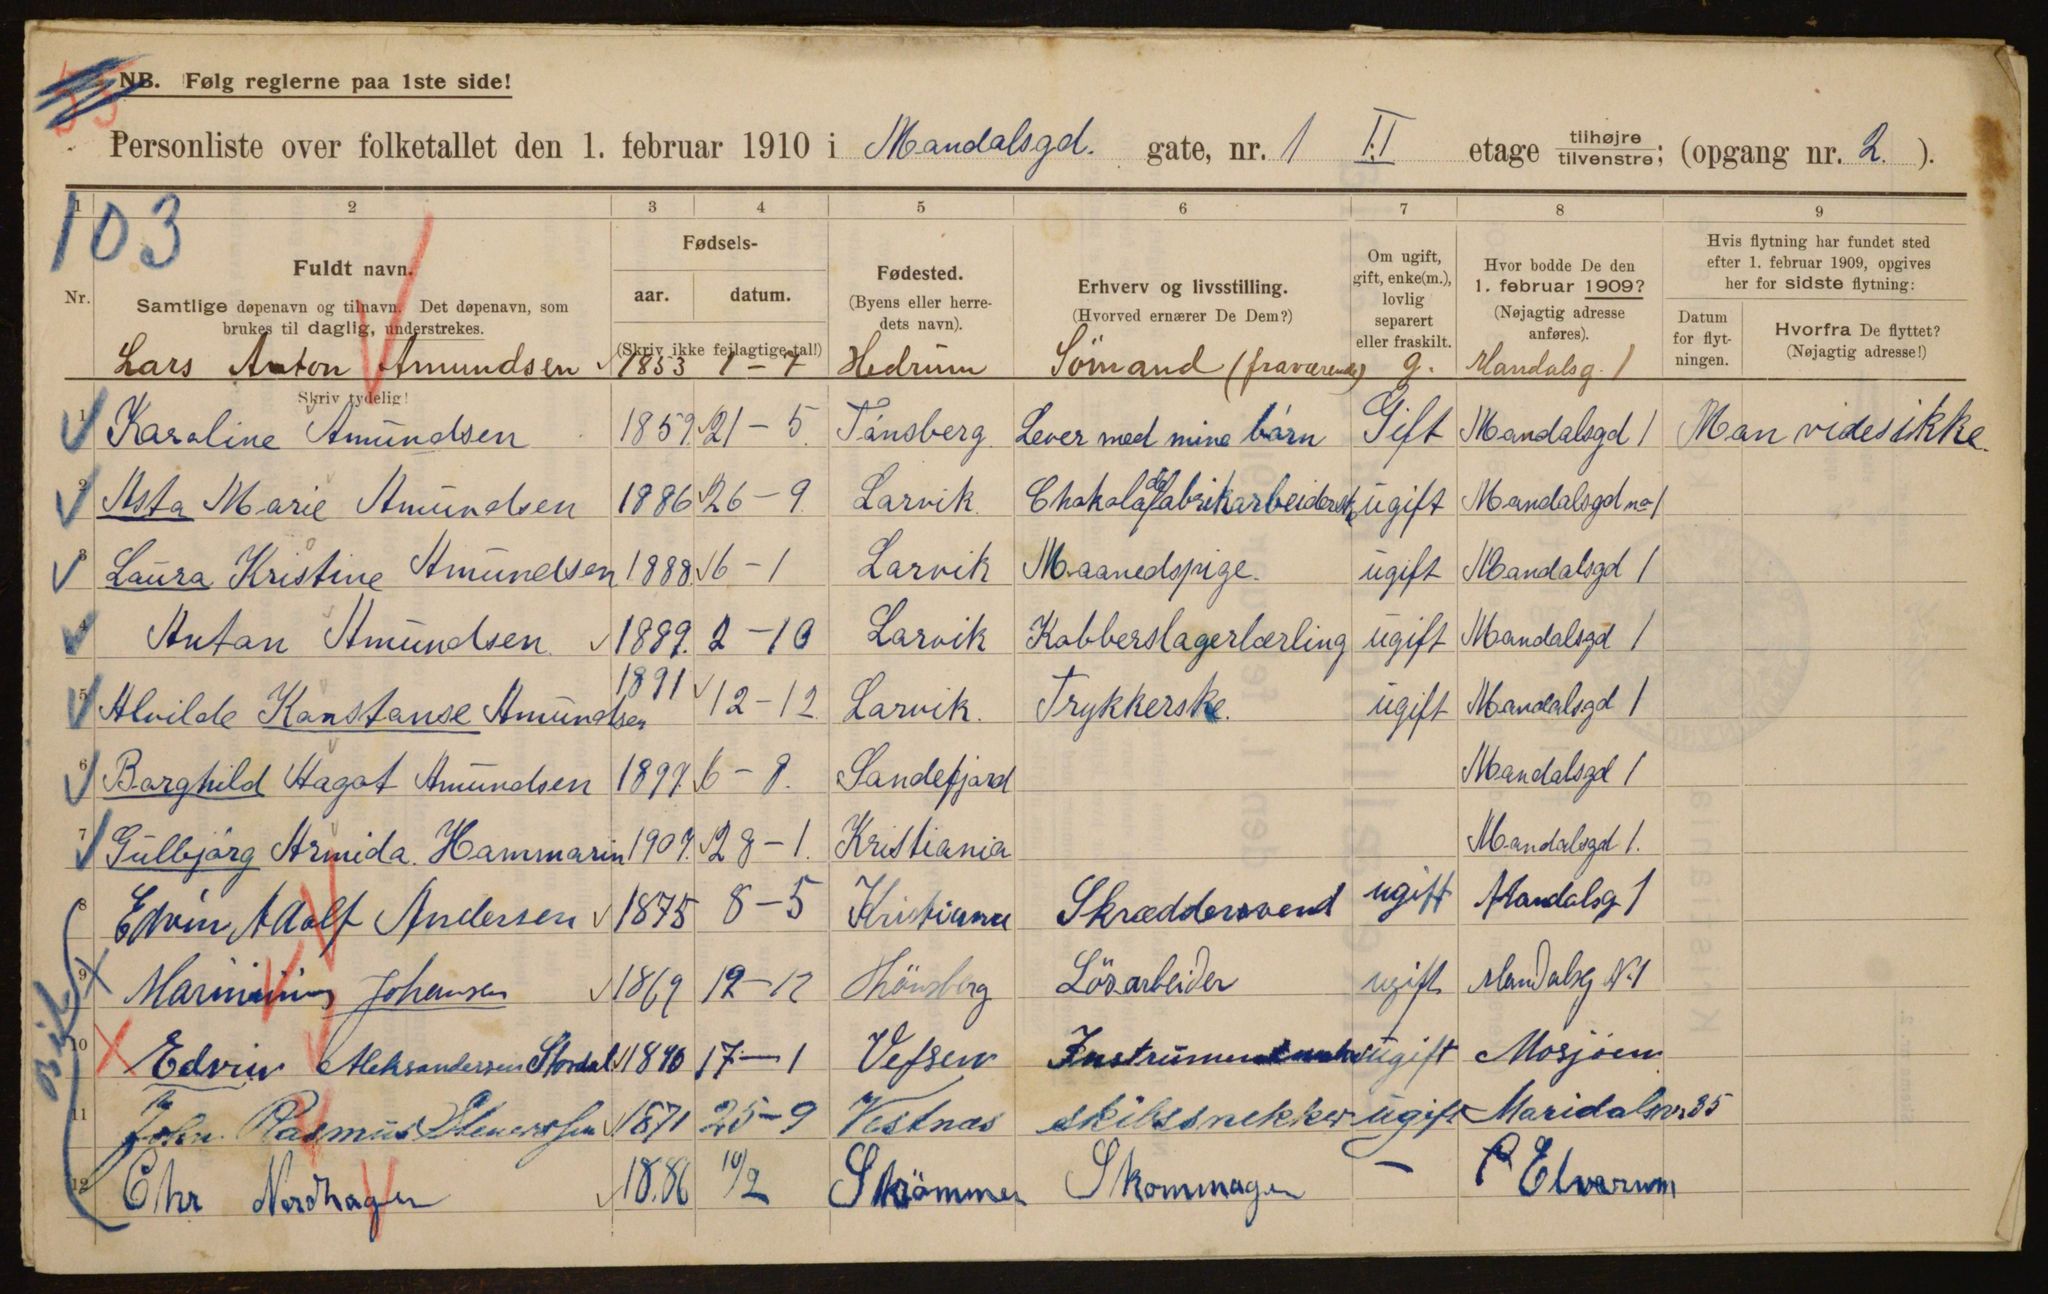 NB. Følg reglerne paa 1ste side!
Personliste over folketallet den 1. februar 1910 i Mandalsgd. gate, nr. 1 II etage tilhøjre tilvenstre; (opgang nr. 2. ).
1 2 3 4 5 6 7 8 9
103
Nr.
Fuldt navn.
Samtlige døpenavn og tilnavn. Det døpenavn, som
brukes til daglig, understrekes.
Skriv tydelig!
Fødsels-
aar. datum.
(Skriv ikke fejlagtige tal!)
Fødested.
(Byens eller herre-
dets navn).
Erhverv og livsstilling.
(Hvorved ernærer De Dem?)
Om ugift,
gift, enke(m.),
lovlig
separert
eller fraskilt.
Hvor bodde De den
1. februar 1909?
(Nøjagtig adresse
anføres).
Hvis flytning har fundet sted
efter 1. februar 1909, opgives
her for sidste flytning:
Datum
for flyt-
ningen.
Hvorfra De flyttet?
(Nøjagtig adresse!)
Lars Anton Amundsen 1853 1-7 Hedrum Sömand (fraværende) g. Mandalsg. 1
1 Karoline Amundsen 1859. 21-5. Tönsberg. Lever med mine börn Gift Mandalsgd 1 Man vides ikke.
2 Asta Marie Amundsen 1886 26-9. Larvik. Chokoladefabrikarbeiderske ugift Mandalsgd no 1
3 Laura Kristine Amundsen 1888. 6-1 Larvik Maanedspige. ugift Mandalsgd 1
4 Anton Amundsen. 1889. 2-10 Larvik Kobberslagerlærling ugift Mandalsgd 1
5 Alvilde Konstanse Amundsen 1891 12-12. Larvik. Trykkerske. ugift Mandalsgd 1
6 Borghild Hagot Amundsen 1897. 6-8. Sandefjord Mandalsgd 1
7 Gulbjörg Armida. Hammarin 1907. 28-1. Kristiania Mandalsgd 1.
8 Edvin Adolf Andersen 1875 8-5 Kristiania Skræddersvend ugift Mandalsg 1
9 Johansen 1869 12-12 Lösarbeider ugift Mandalsg No 1
10 Edvin Aleksandersen Stordal 17-1 Vefsen ugift Mosjöen
11 John Rasmus 1871 25-9 Vestnes skibssnekker ugift Maridalsv. 35
12 Chr Nordhagen 1886 10/2 Strömmen Skommager - Elverum